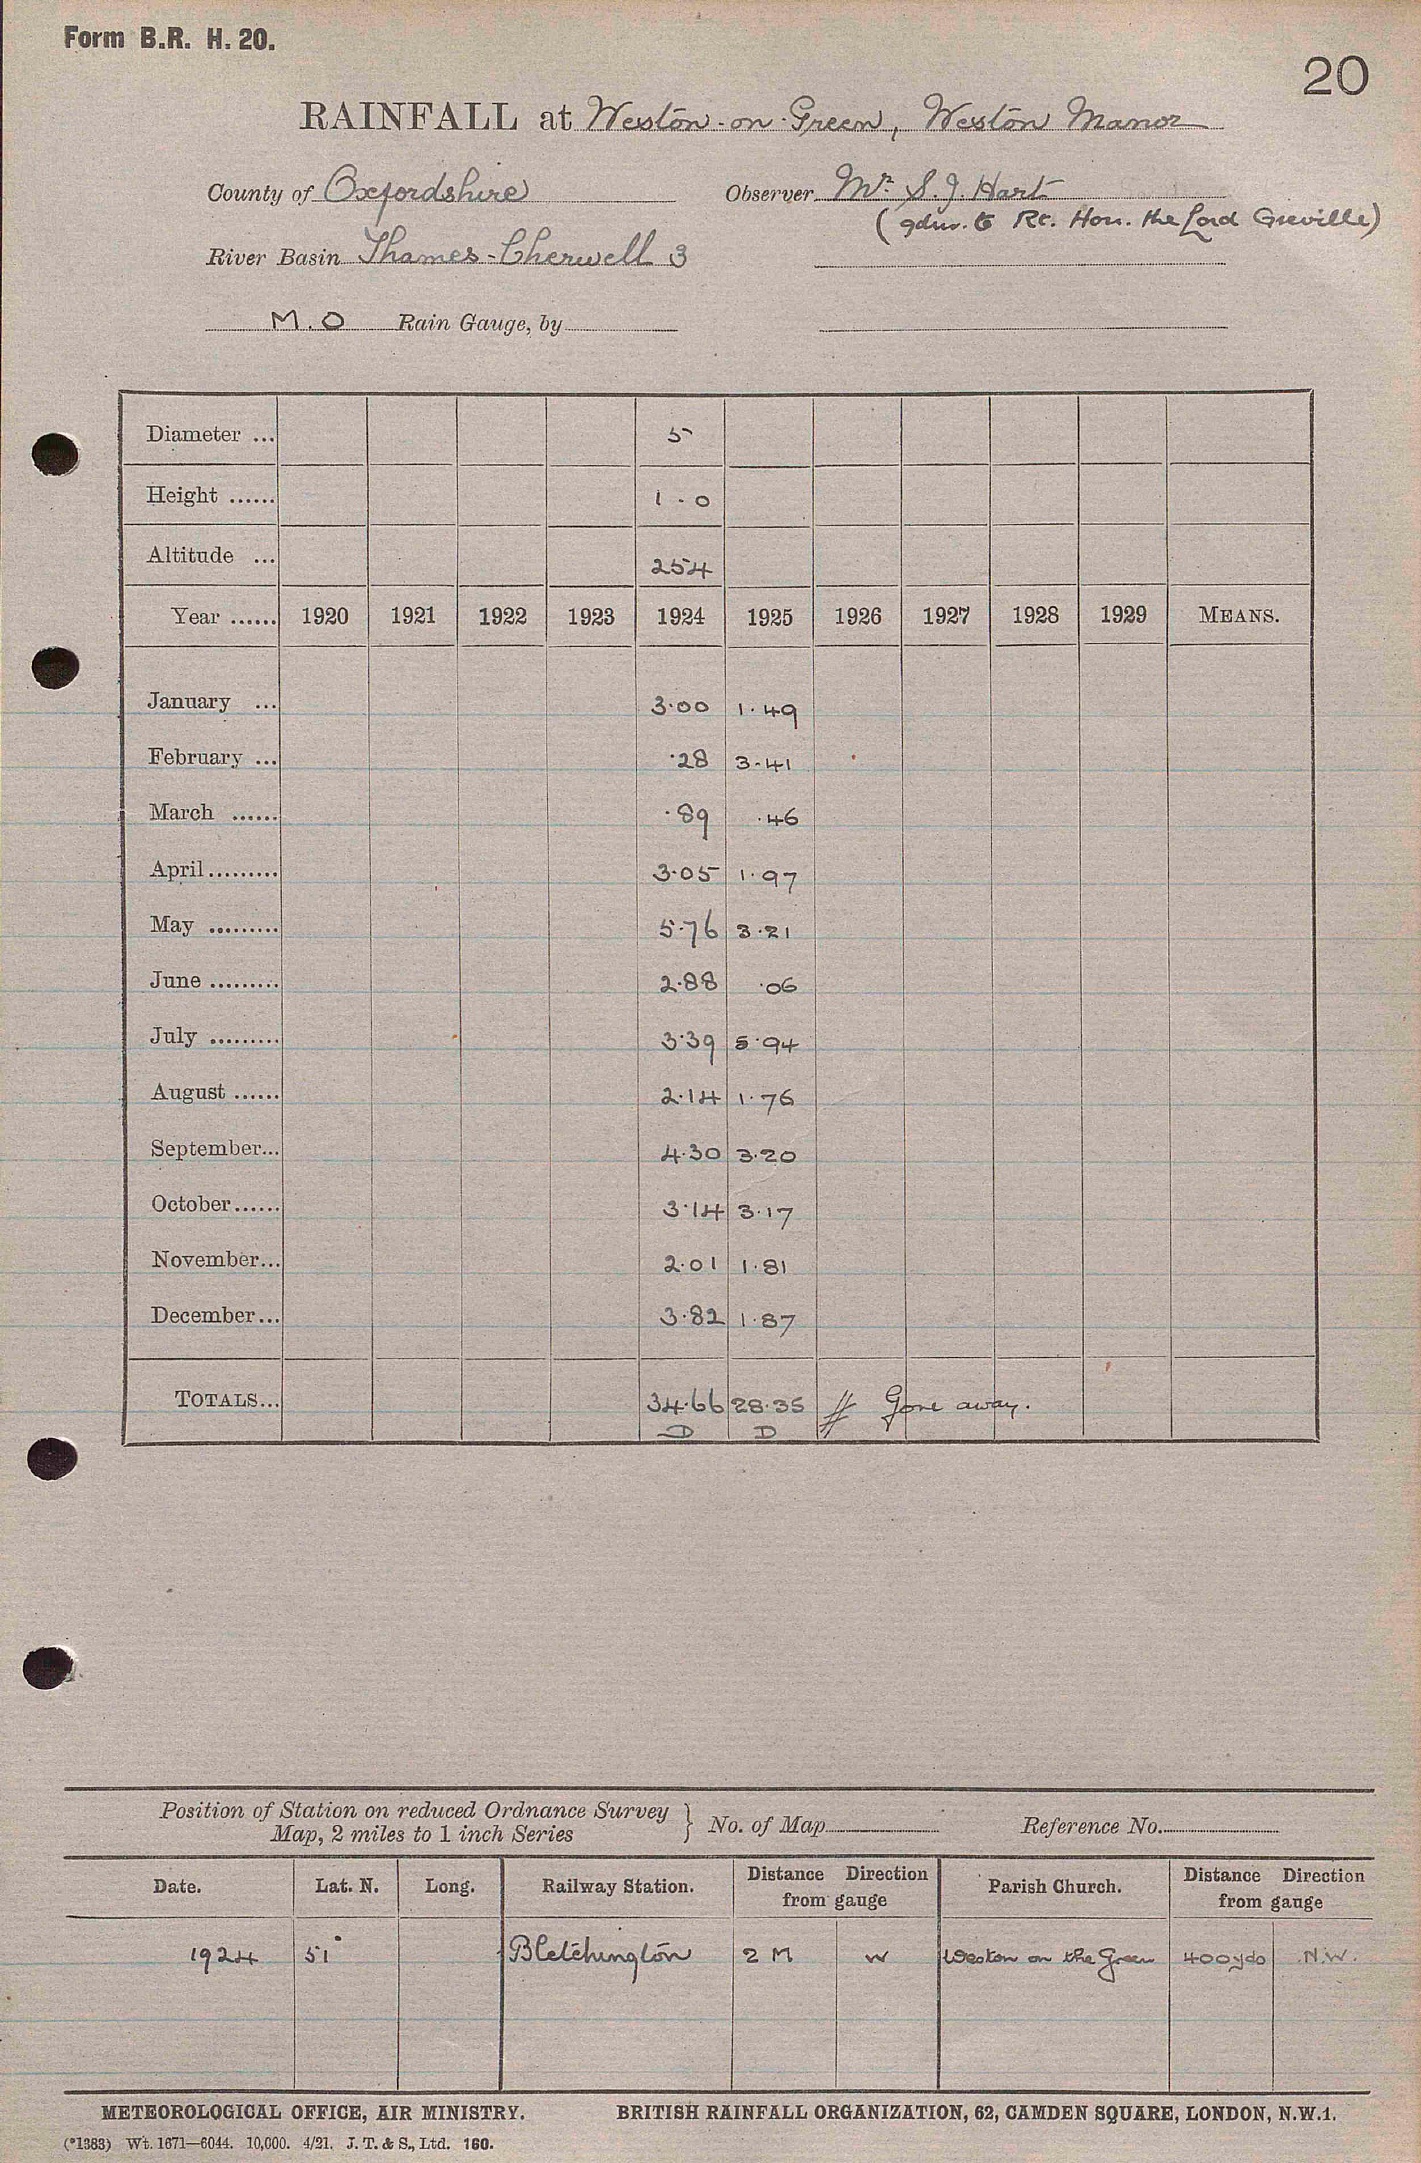 Form B.R. H. 20.
20
RAINFALL at Weston-on-Green, Weston Manor
County of Oxfordshire Observer Mr. S. J. Hart
(gdnr. to Rt. Hon. the Lord Greville)
River Basin Thames-Cherwell 3
M.O Rain Gauge, by
Diameter ... 5
Height ...... 1 - 0
Altitude ... 254
Year ...... 1920 1921 1922 1923 1924 1925 1926 1927 1928 1929 MEANS.
January ... 3.00 1.49
February ... .28 3.41
March ...... .89 .46
April......... 3.05 1.97
May ......... 5.76 3.21
June ......... 2.88 .06
July ......... 3.39 5.94
August ...... 2.14 1.76
September... 4.30 3.20
October...... 3.14 3.17
November... 2.01 1.81
December... 3.82 1.87
TOTALS... 34.66 28.35 // Gone away.
D D
Position of Station on reduced Ordnance Survey
Map, 2 miles to 1 inch Series } No. of Map Reference No.
Date. Lat. N. Long. Railway Station. Distance Direction from gauge Parish Church. Distance Direction from gauge
1924 51° Bletchington 2 M W Weston on the Green 400 yds N.W.
METEOROLOGICAL OFFICE, AIR MINISTRY. BRITISH RAINFALL ORGANIZATION, 62, CAMDEN SQUARE, LONDON, N.W.1.
(*1383) Wt. 1671—6044. 10,000. 4/21. J. T. & S., Ltd. 160.